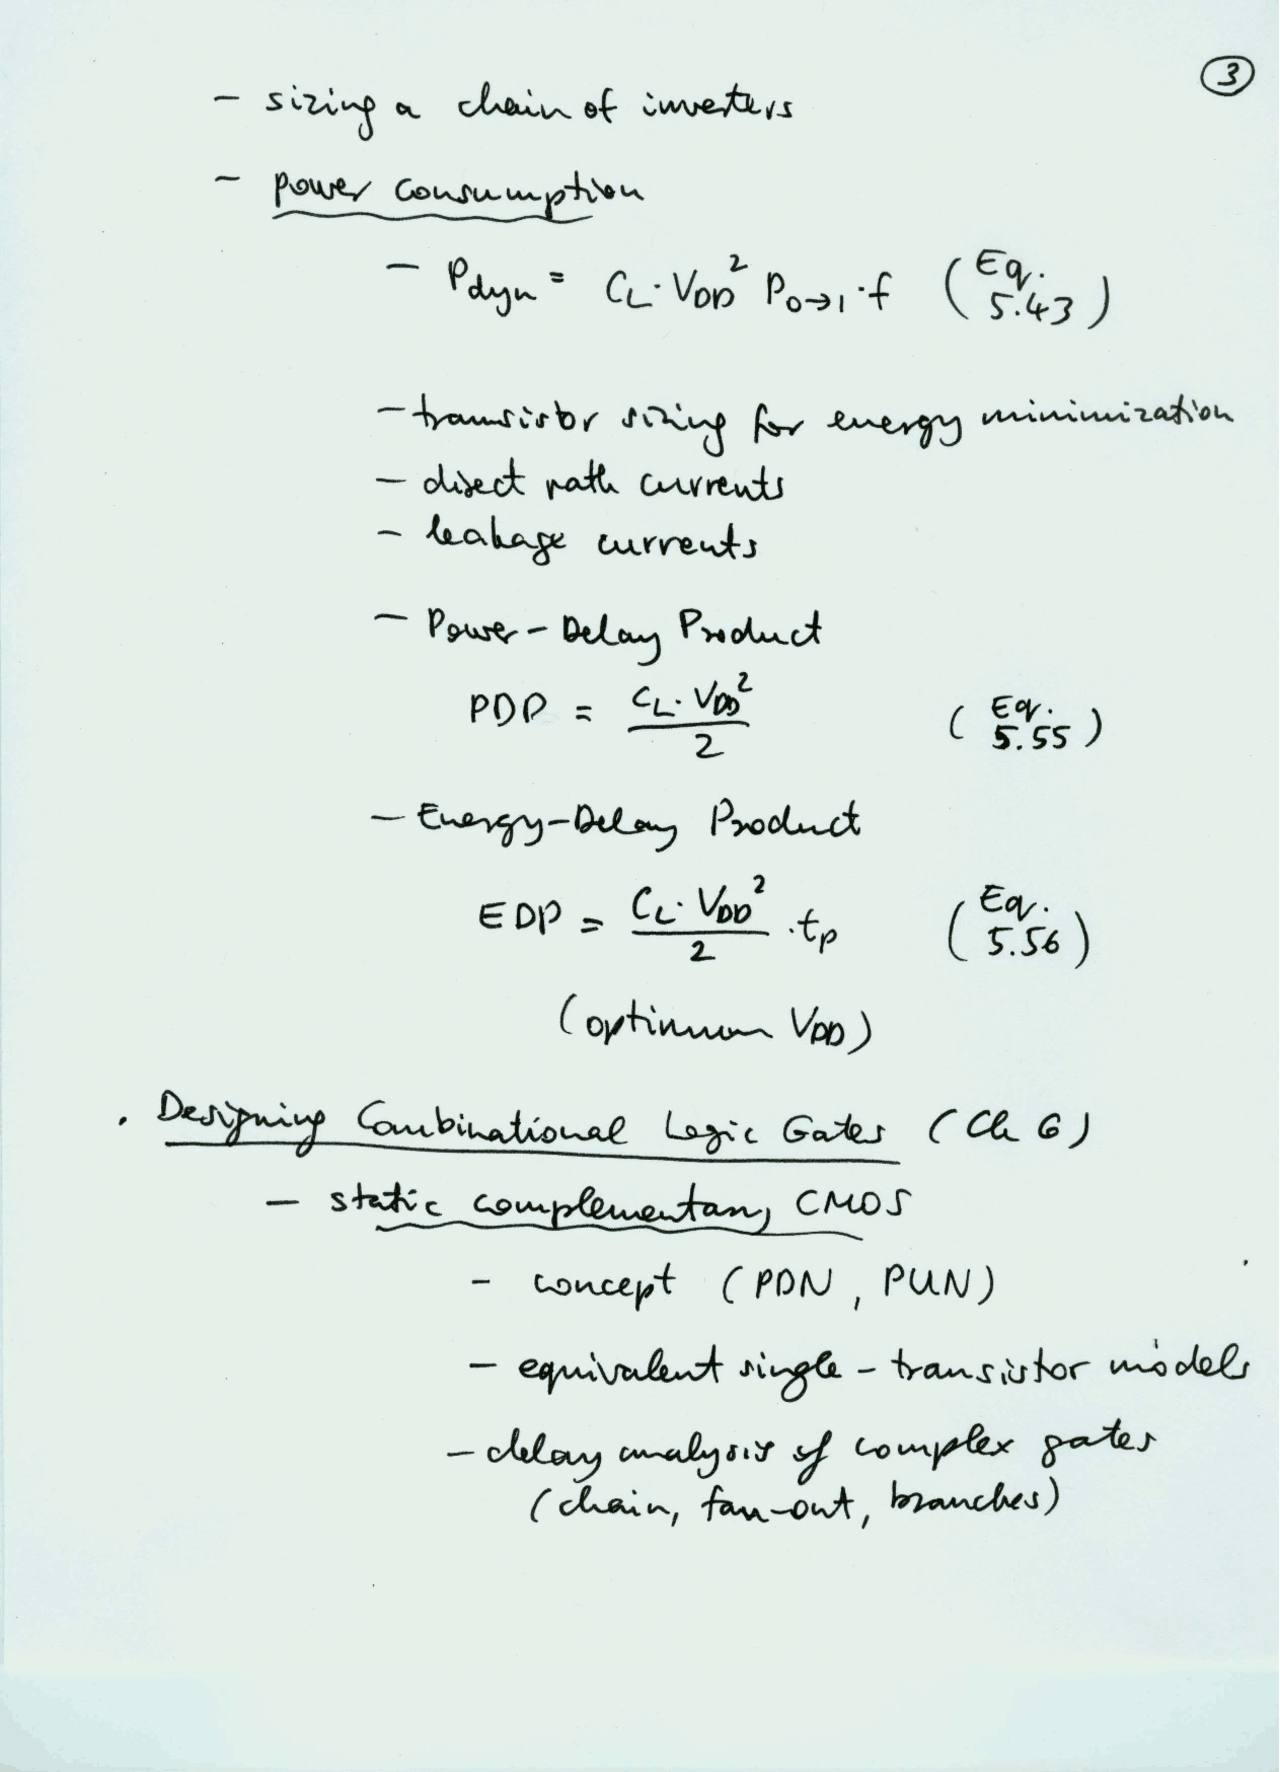 3
- sizing a chain of inverters
- power consumption
- Pdyn = CL · VDD² P0→1 · f (Eq. 5.43)
- transistor sizing for energy minimization
- direct path currents
- leakage currents
- Power-Delay Product
PDP = CL · VDD² / 2 (Eq. 5.55)
- Energy-Delay Product
EDP = CL · VDD² / 2 · tp (Eq. 5.56)
(optimum VDD)
. Designing Combinational Logic Gates (Ch 6)
- static complementary CMOS
- concept (PDN, PUN)
- equivalent single-transistor models
- delay analysis of complex gates
(chain, fan-out, branches)